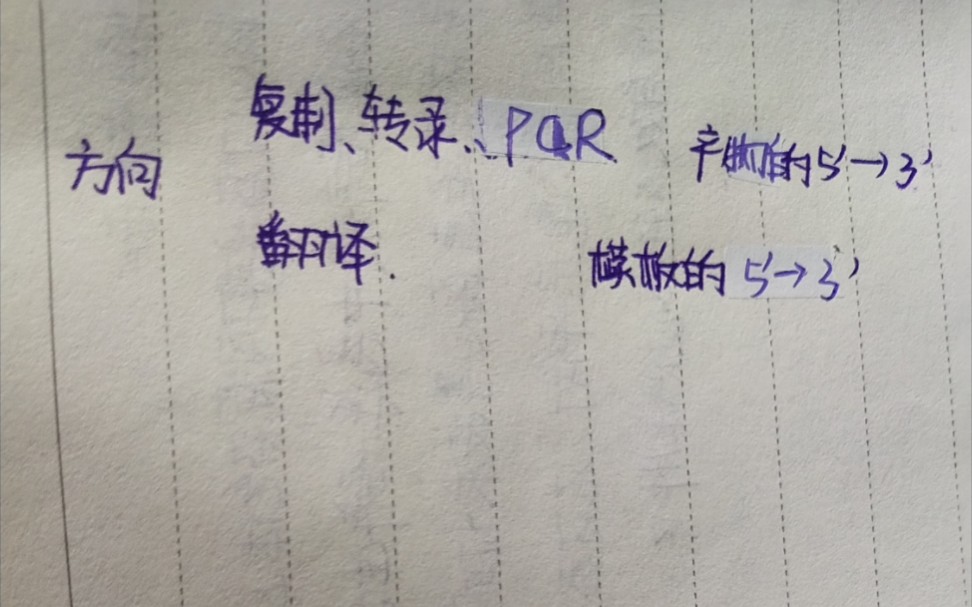 复制、转录、PCR 产物的5'→3'
方向
翻译. 模板的 5'→3'